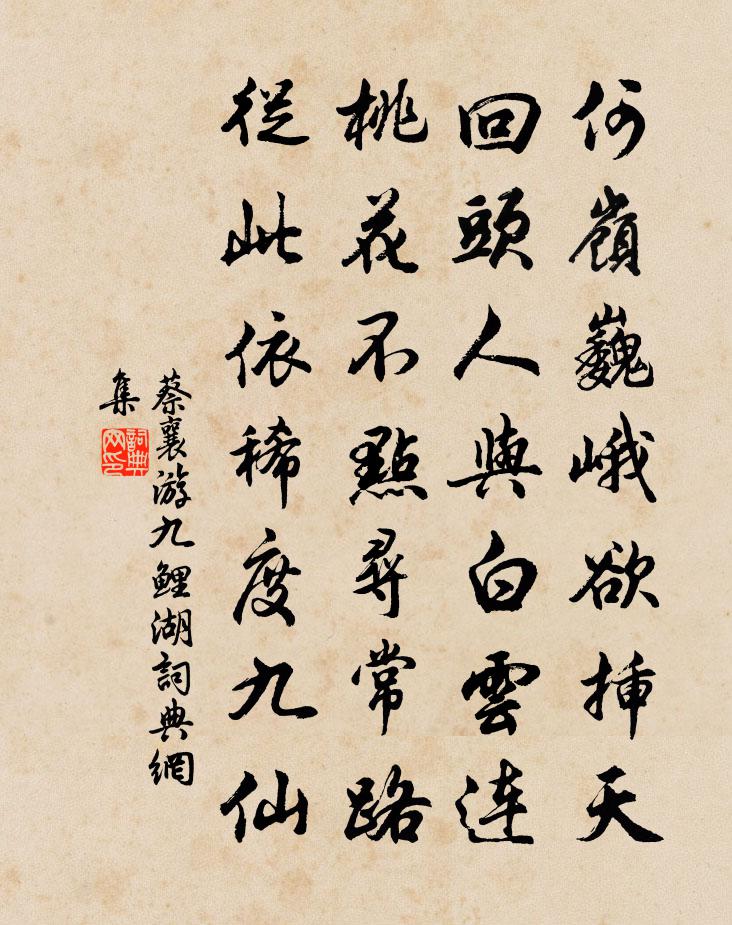 何嶺巍峨欲揷天
回頭人與白雲連
桃花不點尋常路
從此依稀度九仙
蔡襄游九鯉湖詞典網
集
詞典
网印